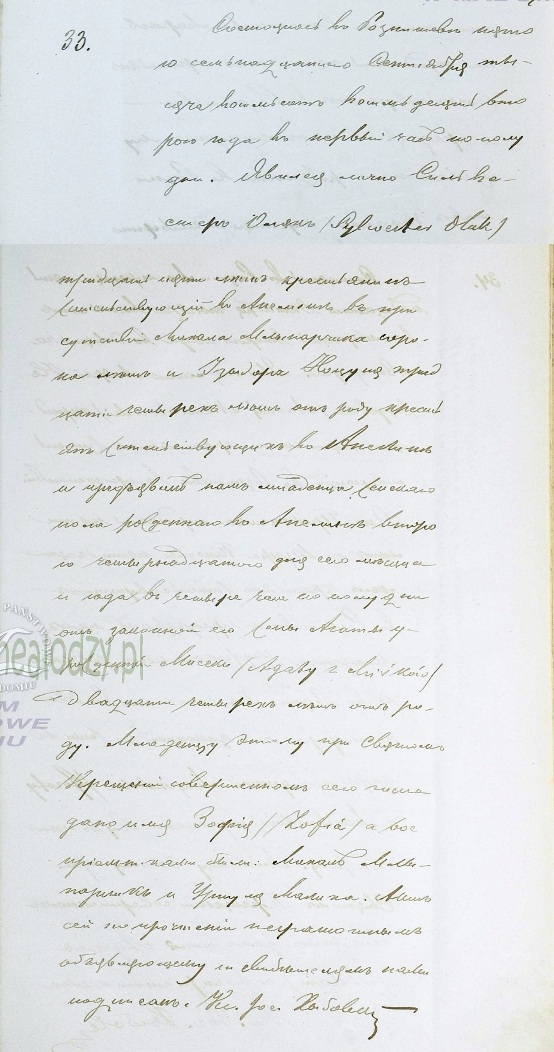 33.
Состоялось во Рознишеве пято
го семьнадцатаго Сентября ты
сяча восемьсотъ восемьдесятъ вто
рого года въ первый часъ по полу
дни. Явился лично Сильве-
стеръ Олякъ /Sylwester Olak/
тридцати пяти лѣтъ крестьянинъ
жительствующій во Анелинѣ въ при
сутствіи Михала Млынарчика соро-
ка лѣтъ и Изыдора трид
цати четырехъ лѣтъ отъ роду кресть
янъ жительствующихъ во Анелинѣ
и предъявилъ намъ младенца женскаго
пола рожденнаго во Анелинѣ второ
го четырнадцатого дня сего мѣсяца
и года въ четыре часа по полудни
отъ законной его жены Агаты у-
рожденной /Agaty z /
двадцати четырехъ лѣтъ отъ ро-
ду. Младенцу этому при Святомъ
Крещеніи совершенномъ сего числа
дано имя Зофія /Zofia/ а вос
пріемниками были: Михалъ Млы-
нарчикъ и Уршуля. Актъ
сей по прочтеніи неграмотнымъ
объявляющему и свидѣтелямъ нами
подписанъ. Кс. Jos.
PAŃSTWOWE
genealodzy.pl